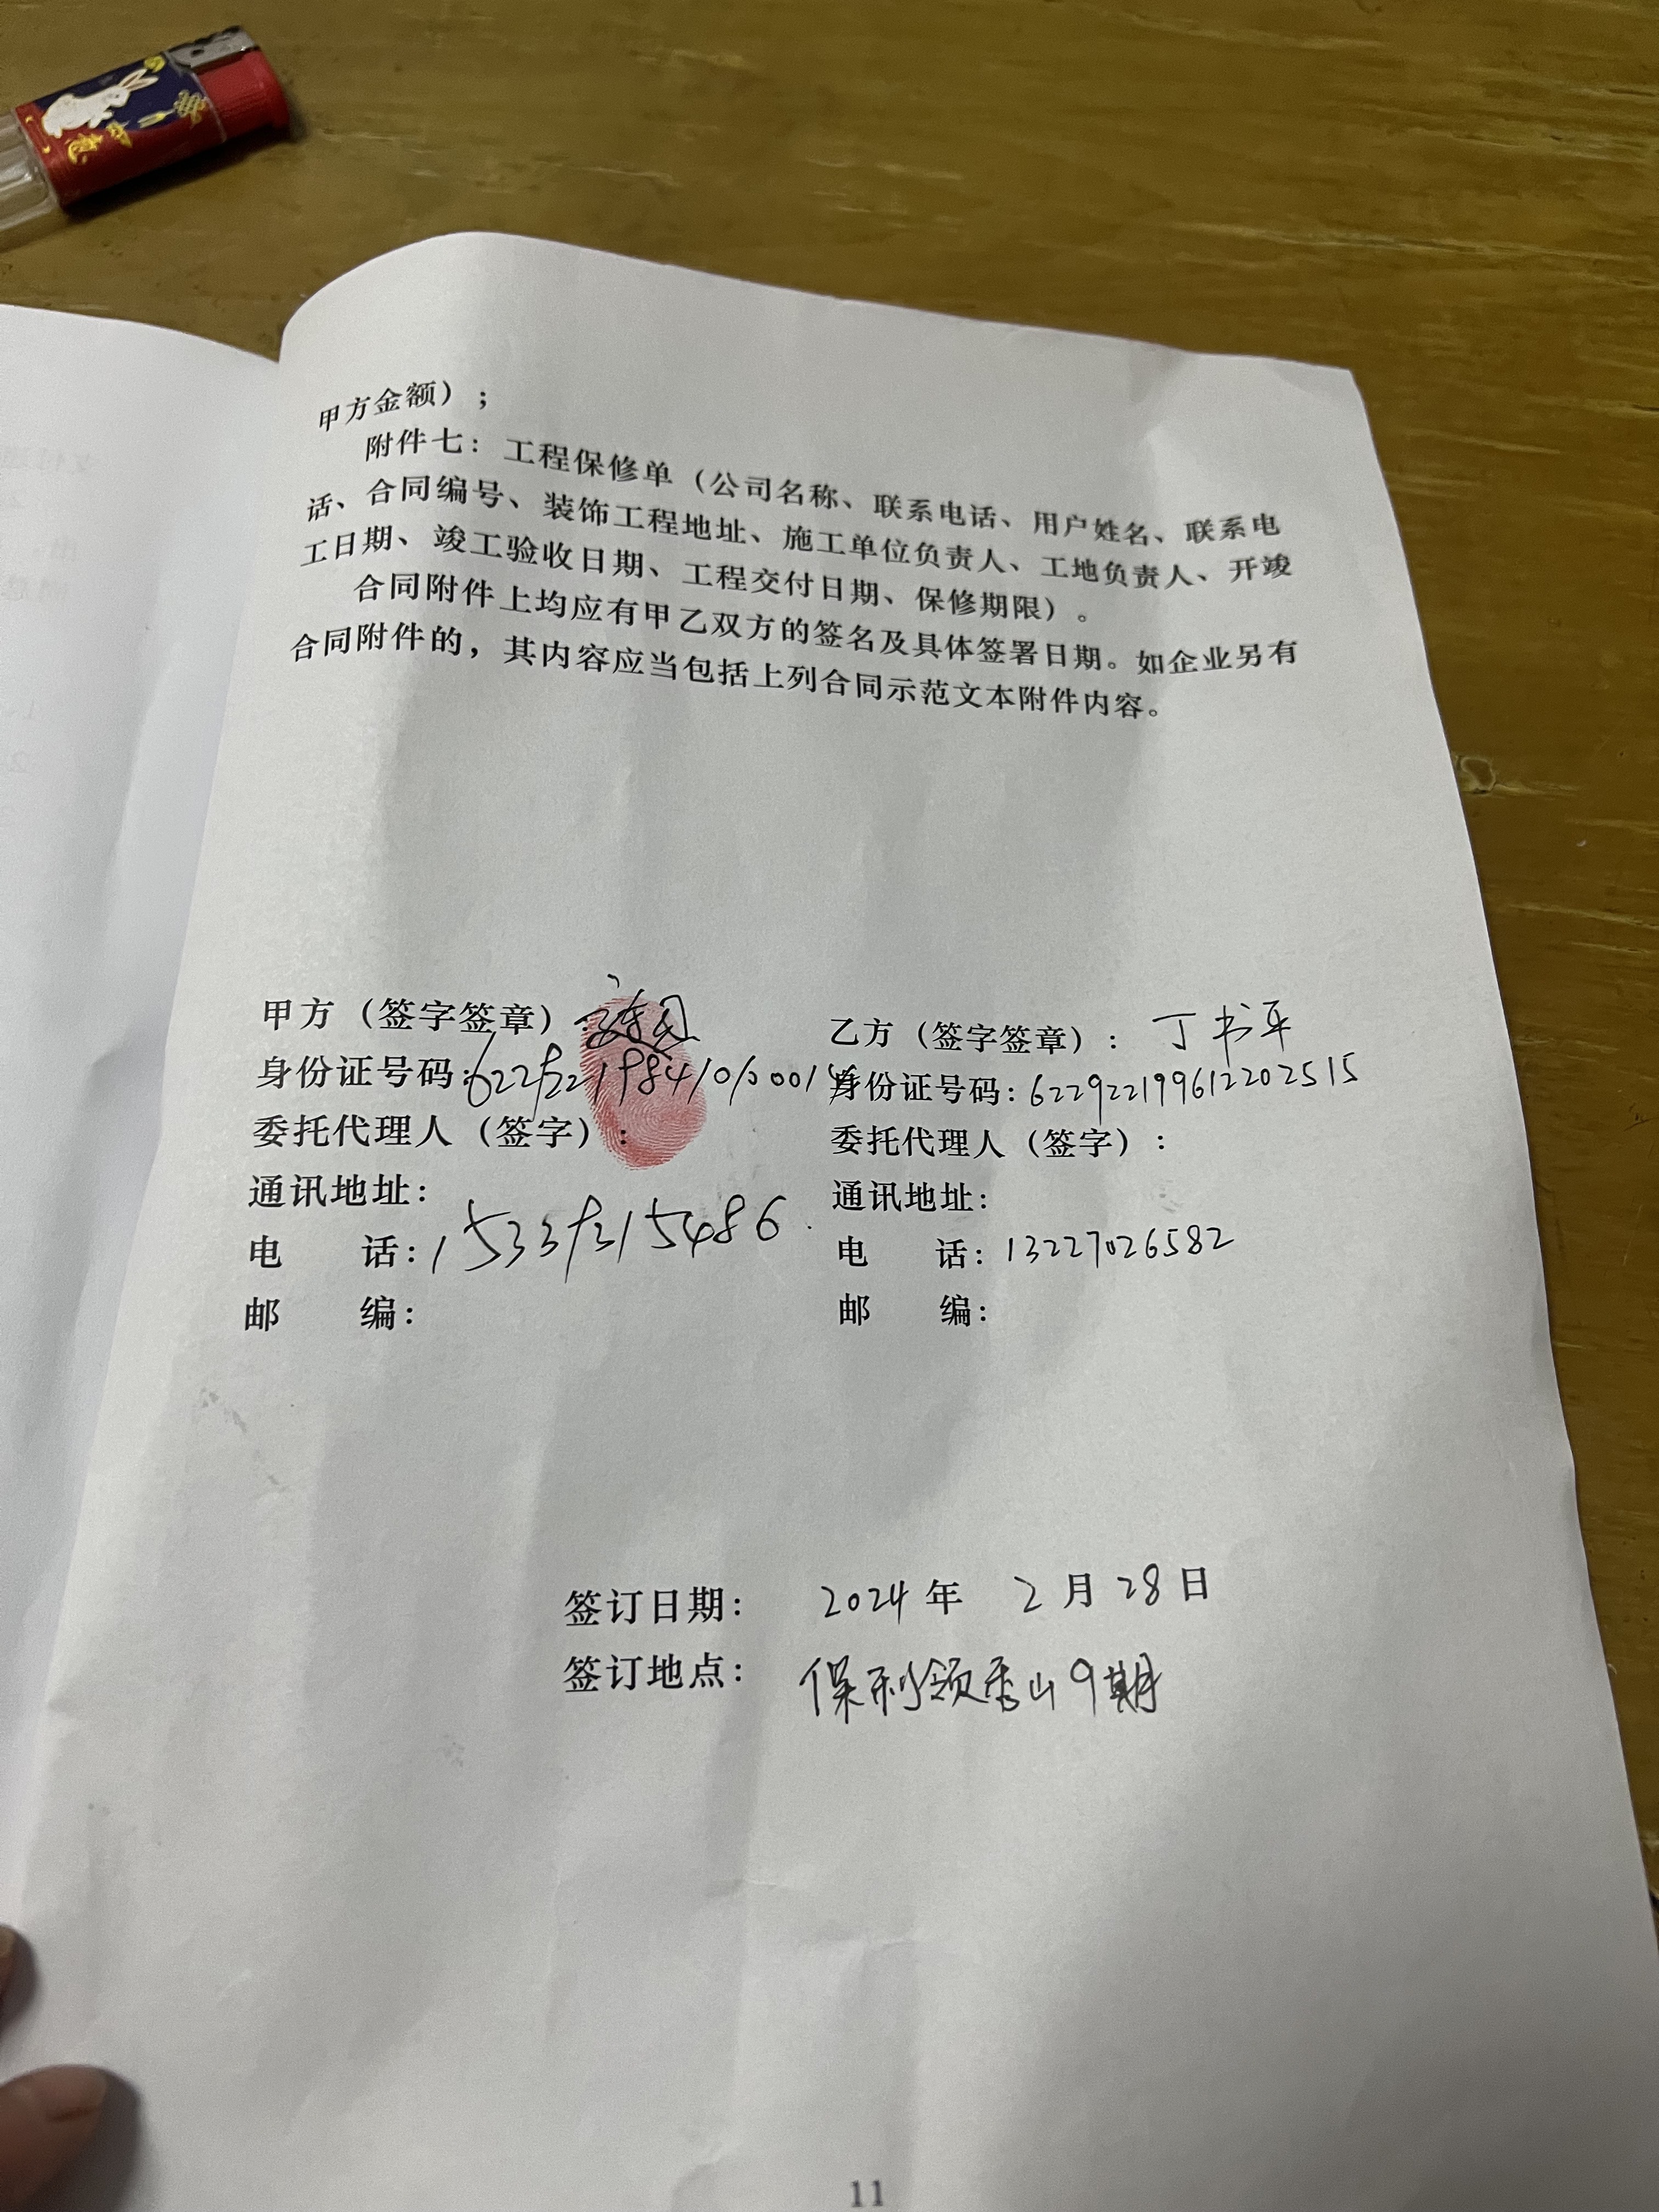 甲方金额）；
附件七：工程保修单（公司名称、联系电话、用户姓名、联系电
话、合同编号、装饰工程地址、施工单位负责人、工地负责人、开竣
工日期、竣工验收日期、工程交付日期、保修期限）。
合同附件上均应有甲乙双方的签名及具体签署日期。如企业另有
合同附件的，其内容应当包括上列合同示范文本附件内容。
甲方（签字签章）：
身份证号码：
委托代理人（签字）：
通讯地址：
电 话：
邮 编：
乙方（签字签章）：丁书平
身份证号码：622922199612202515
委托代理人（签字）：
通讯地址：
电 话：13227026582
邮 编：
签订日期： 2024 年 2 月 28 日
签订地点： 保利领秀山9期
11